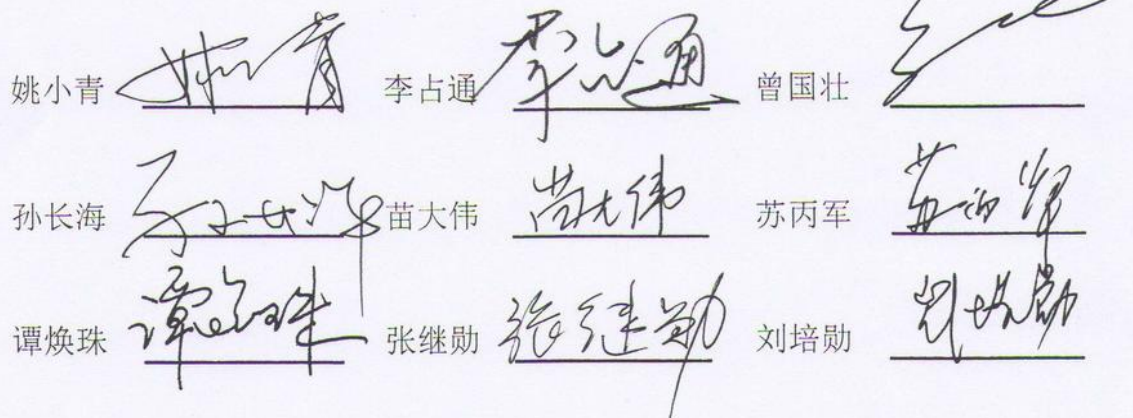 姚小青 姚小青 李占通 李占通 曾国壮
孙长海 孙长海 苗大伟 苗大伟 苏丙军 苏丙军
谭焕珠 谭焕珠 张继勋 张继勋 刘培勋 刘培勋